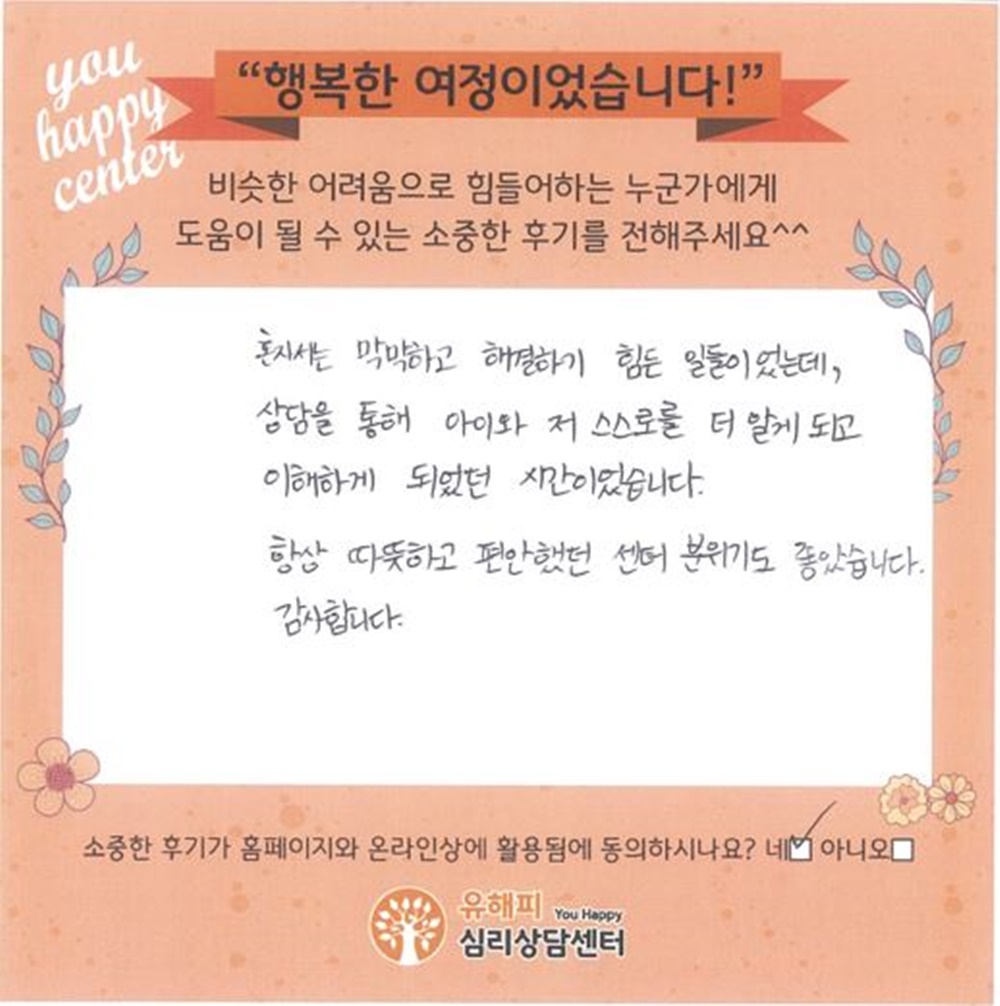 you
happy
center
“행복한 여정이었습니다!”
비슷한 어려움으로 힘들어하는 누군가에게
도움이 될 수 있는 소중한 후기를 전해주세요^^
혼자서는 막막하고 해결하기 힘든 일들이었는데,
상담을 통해 아이와 저 스스로를 더 알게 되고
이해하게 되었던 시간이었습니다.
항상 따뜻하고 편안했던 센터 분위기도 좋았습니다.
감사합니다.
소중한 후기가 홈페이지와 온라인상에 활용됨에 동의하시나요? 네☑ 아니오☐
유해피 You Happy
심리상담센터